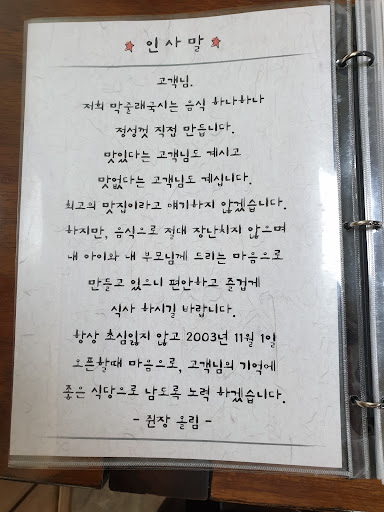 인사말
고객님.
저희 막줄래국시는 음식 하나하나
정성껏 직접 만듭니다.
맛있다는 고객님도 계시고
맛없다는 고객님도 계십니다.
최고의 맛집이라고 얘기하지 않겠습니다.
하지만, 음식으로 절대 장난치지 않으며
내 아이와 내 부모님께 드리는 마음으로
만들고 있으니 편안하고 즐겁게
식사 하시길 바랍니다.
항상 초심잃지 않고 2003년 11월 1일
오픈할때 마음으로, 고객님의 기억에
좋은 식당으로 남도록 노력 하겠습니다.
- 쥔장 올림 -